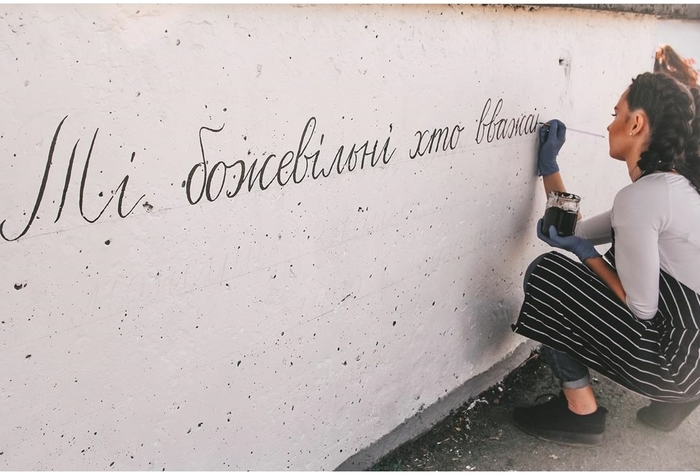 Ті божевільні хто вважаю